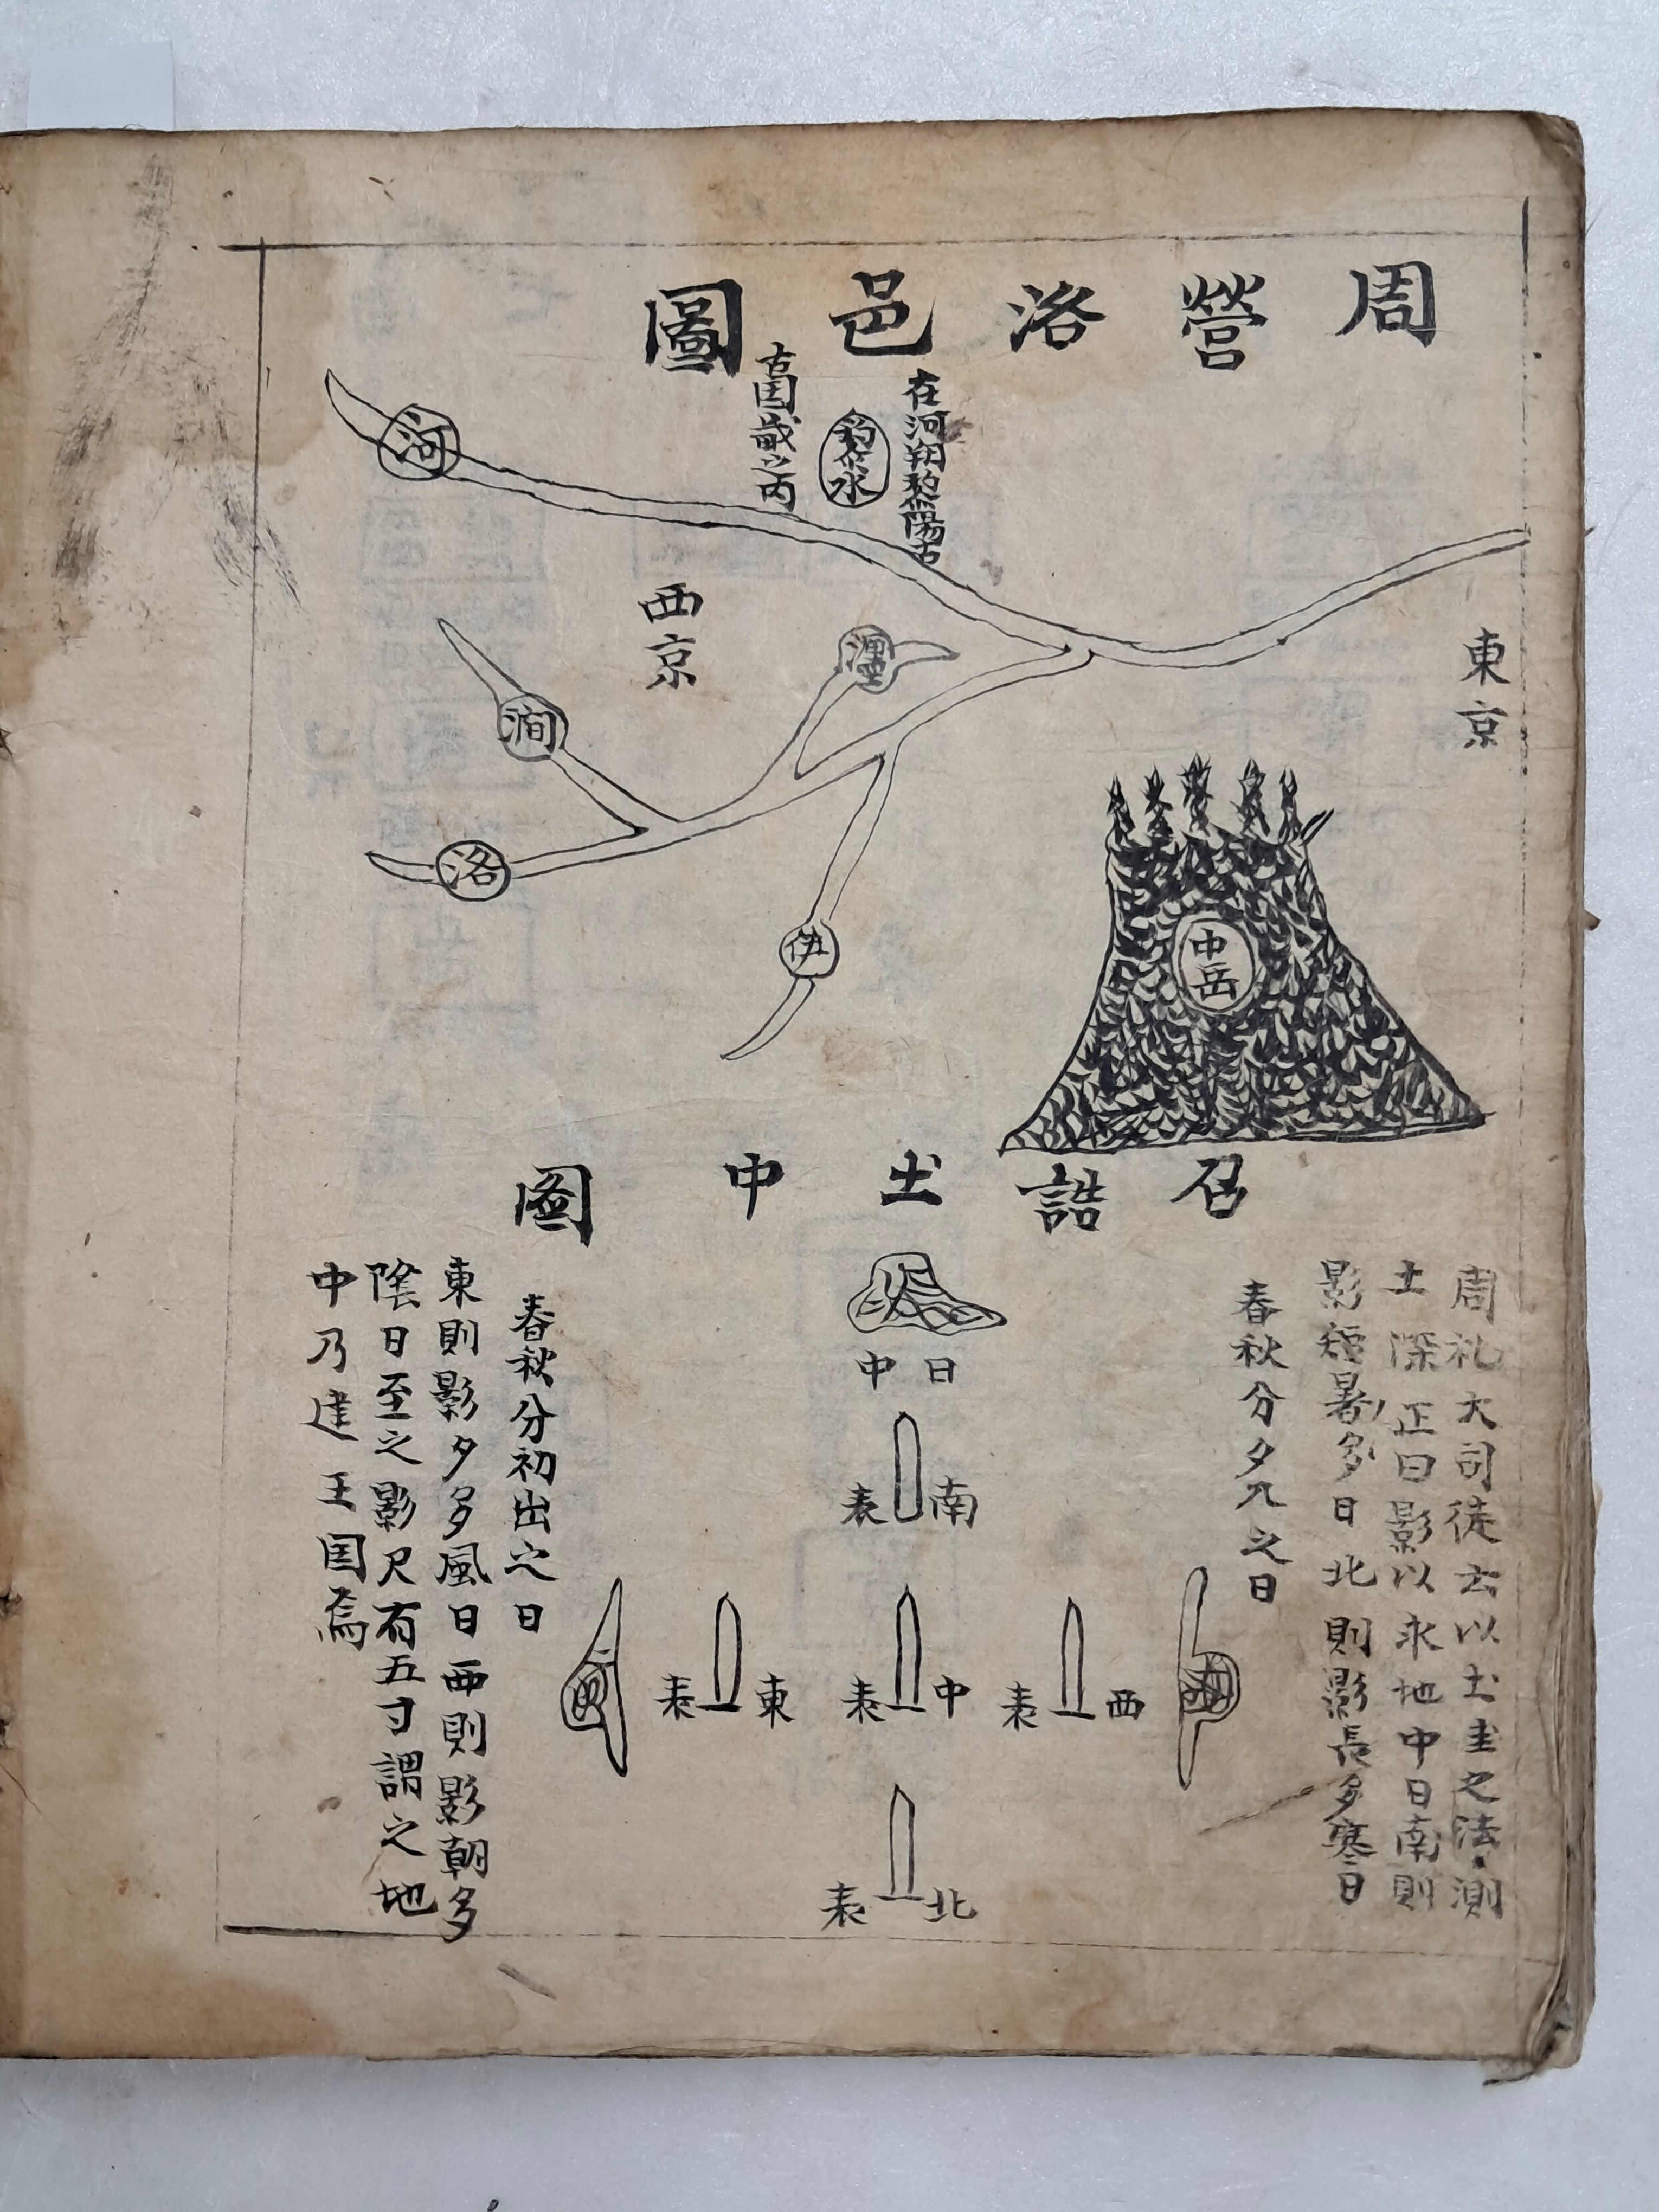 周營洛邑圖
在河朔黎陽古
黎水
古国畿之內
河
東京
西京
瀍
澗
洛
伊
中岳
召誥土中圖
周礼大司徒云以土圭之法測
土深正日影以求地中日南則
影短暑多日北則影長多寒日
春秋分夕入之日
日中
南表
西表
中表
東表
北表
春秋分初出之日
東則影夕多風日西則影朝多
陰日至之影尺有五寸謂之地
中乃建王国焉